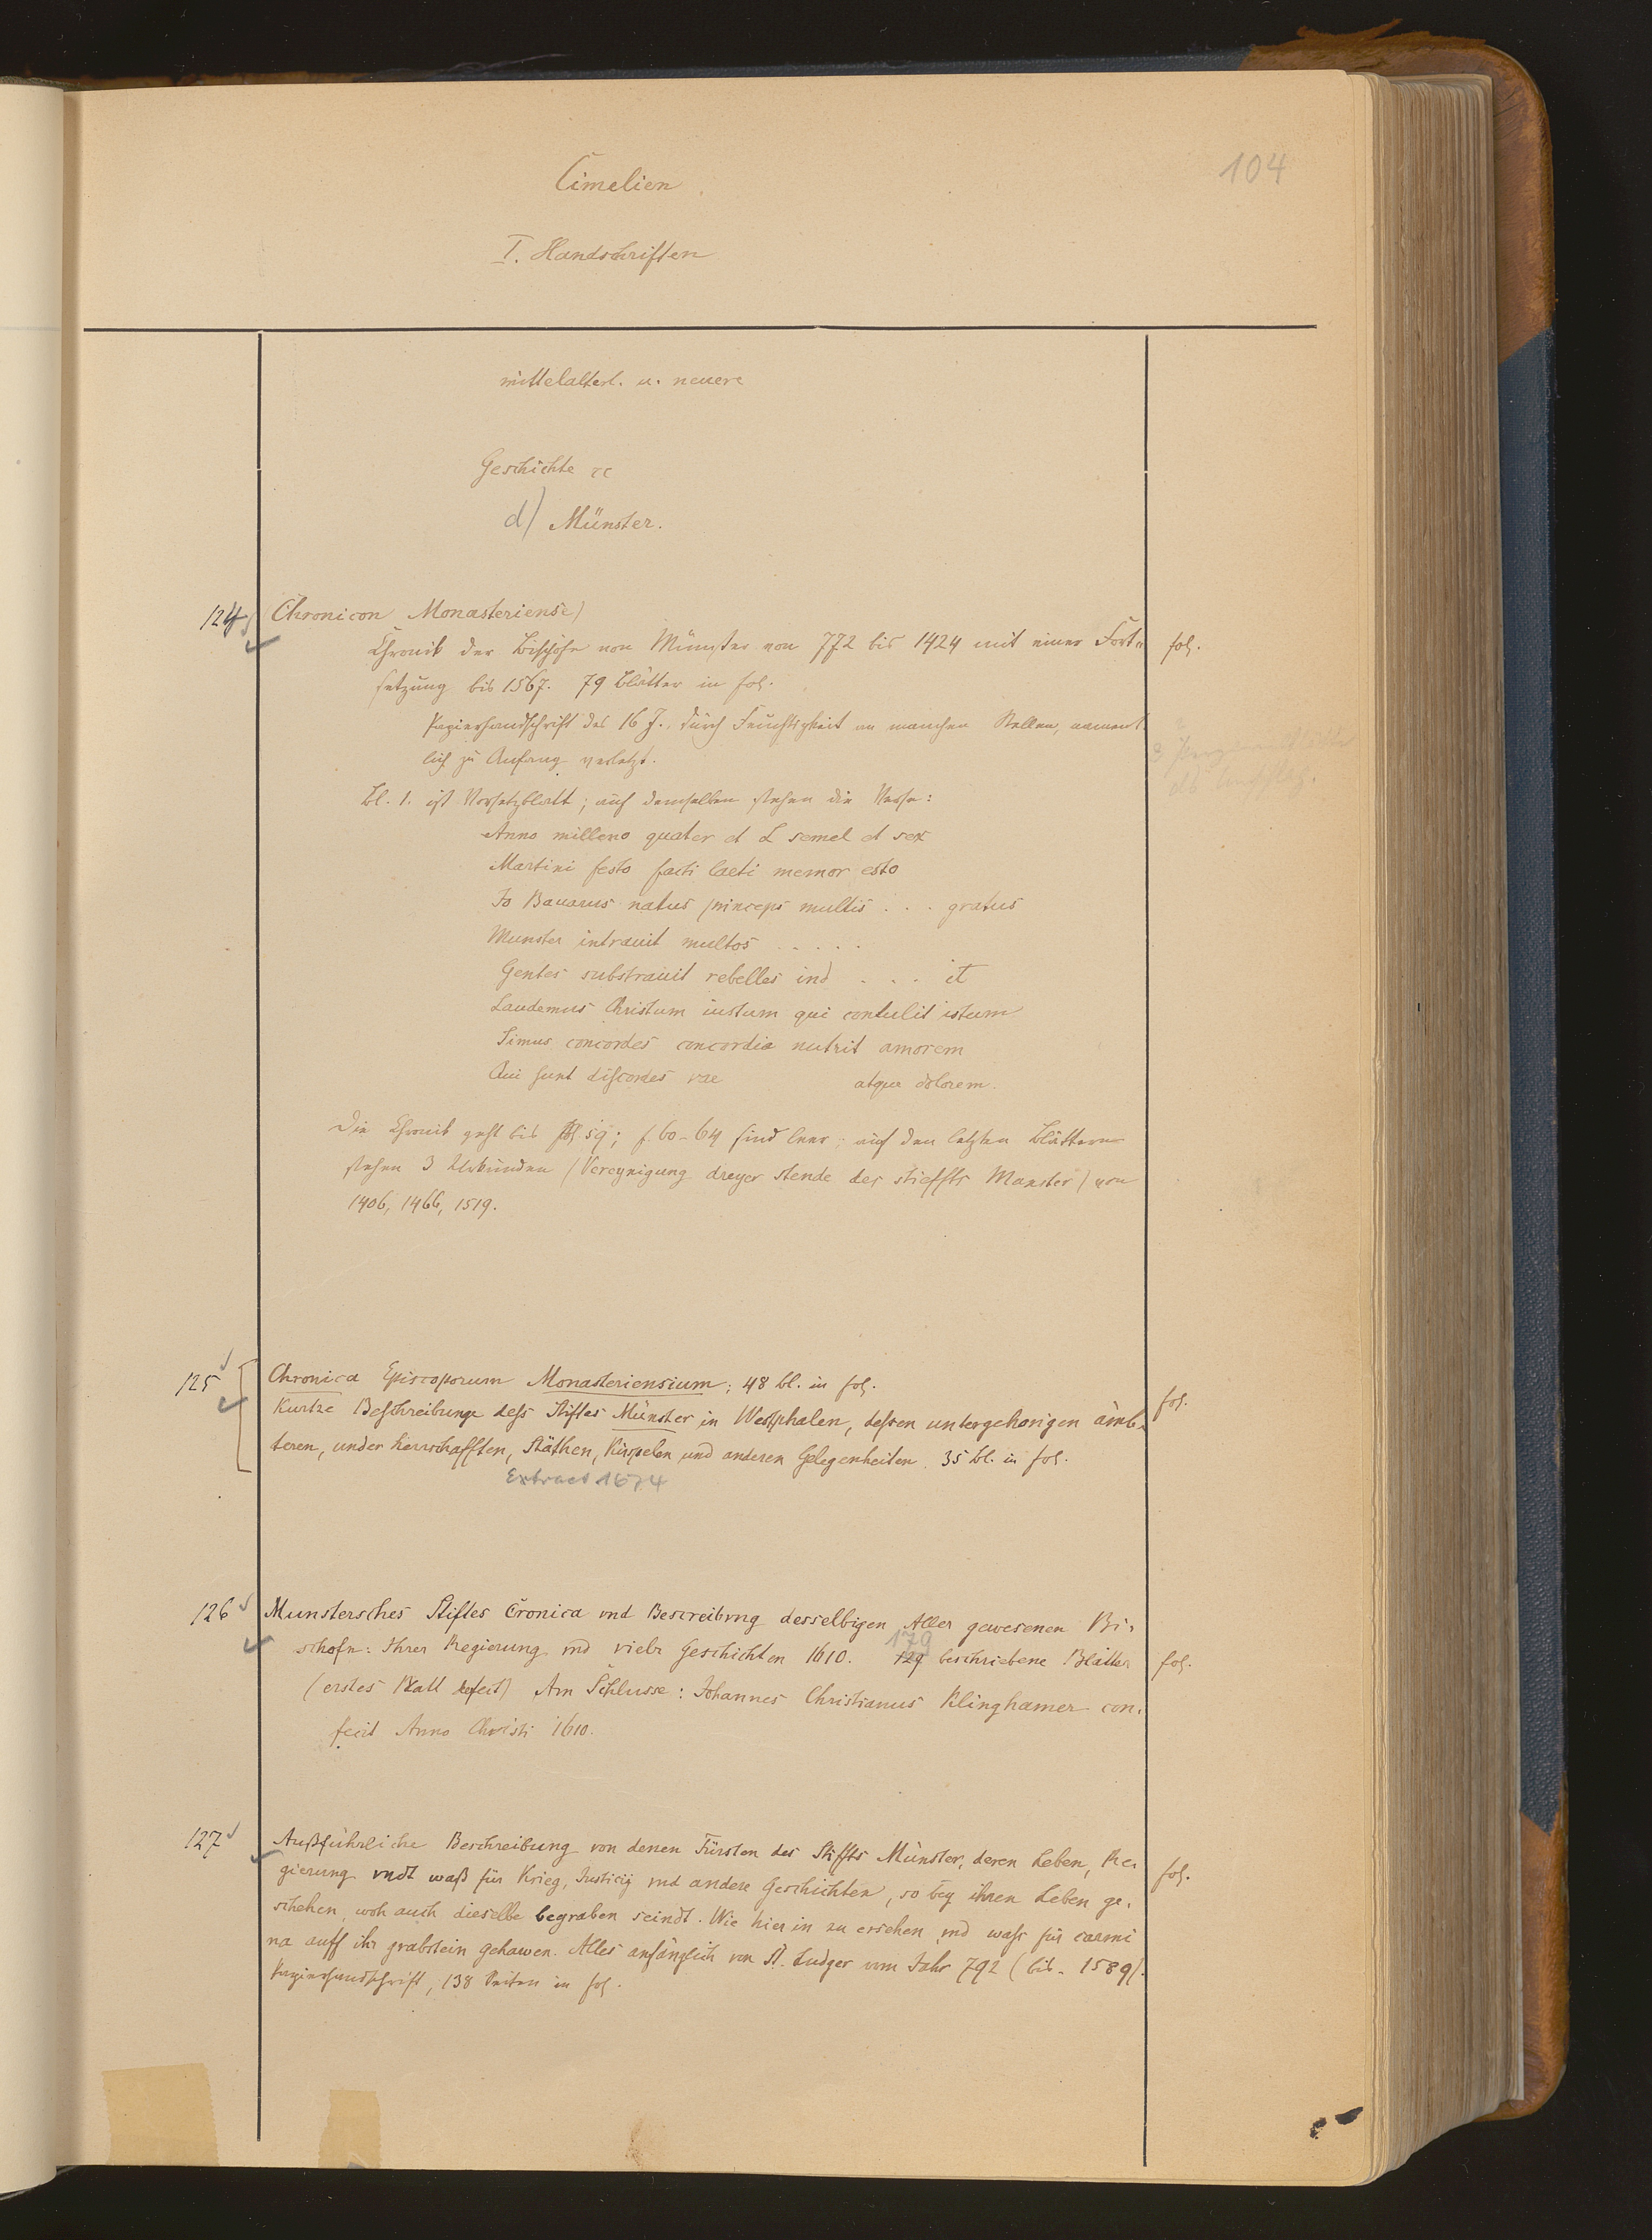 104
Cimelien
I. Handschriften
mittelalterl. u. neuere
Geschichte ꝛc
d) Münster.
124 (Chronicon Monasteriense)
Chronik der Bischöfe von Münster von 772 bis 1424 mit einer Fort= fol.
setzung bis 1567. 79 Blätter in fol.
Papierhandschrift des 16 J., durch Feuchtigkeit an manchen Stellen, nament
lich zu Anfang verletzt.
Bl. 1. ist Vorsetzblatt; auf demselben stehen die Verse:
Anno milleno quater et L semel et sex
Martini festo facti laeti memor esto
Jo Bauarus natus princeps multis . . . gratus
Munster intrauit multos . . . . .
Gentes substrauit rebelles ind . . . it
Laudemus Christum iustum qui contulit istum
Simus concordes concordia nutrit amorem
Qui sunt discordes vae atque dolorem.
Die Chronik geht bis fol 59; f. 60-64 sind leer; auf den letzten Blättern
stehen 3 Urkunden (Vereynigung dreyer stende des stieffts Monster) von
1406, 1466, 1519.
125 Chronica Episcoporum Monasteriensium; 48 bl. in fol.
Kurtze Beschreibunge dess Stiftes Münster in Westphalen, dessen untergehorigen ämb= fol.
teren, under herrschafften, Stäthen, Kirspelen und anderen Gelegenheiten. 35 bl. in fol.
Extract 1674
126 Munstersches Stiftes Cronica vnd Bescreibvng desselbigen Aller gewesenen Bi=
179
schofn: Ihrer Regierung vnd vielr Geschichten 1610. 129 beschriebene Blätter fol.
(erstes Blatt defect) Am Schlusse: Johannes Christianus Klinghamer con=
fecit Anno Christi 1610.
127 Außführliche Beschreibung von denen Fürsten des Stiffts Münster, deren Leben, Re=
gierung vndt waß für Krieg, Justicij vnd andere Geschichten, so bey ihren Leben ge= fol.
schehen, woh auch dieselbe begraben seindt. Wie hier in zu ersehen vnd waß für carmi
na auff ihr grabstein gehawen. Alles anfänglich von St. Ludger vom Jahr 792 (bis 1589).
Papierhandschrift, 138 Seiten in fol.